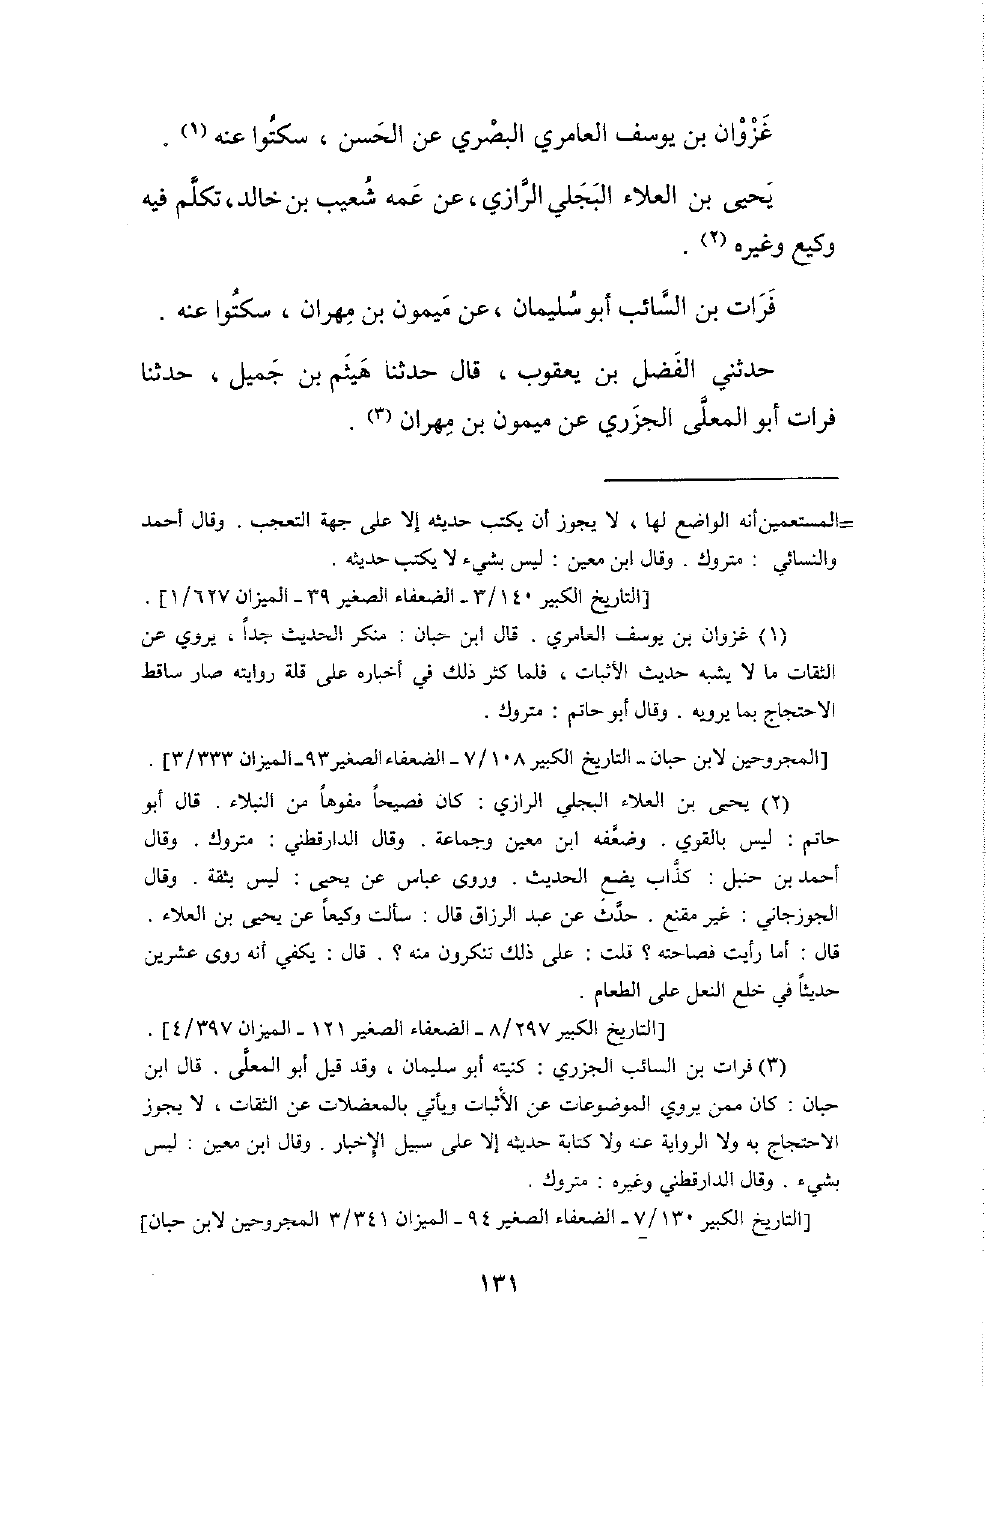 غَزْوْان بن يوسف العامري البصْري عن الحَسن ، سكتُوا عنه (١) .
يَحيى بن العلاء البَجَلي الرَّازي ، عن عَمه شُعيب بن خالد، تكلَّم فيه
وكيع وغيره (٢) .
فَرَات بن السَّائب أبو سُليمان ، عن مَيمون بن مِهران ، سكتُوا عنه .
حدثني الفَضل بن يعقوب ، قال حدثنا هَيثَم بن جَميل ، حدثنا
فرات أبو المعلَّى الجزَري عن ميمون بن مِهران (٣) .
=المستعمين أنه الواضع لها ، لا يجوز أن يكتب حديثه إلا على جهة التعجب . وقال أحمد
والنسائي : متروك . وقال ابن معين : ليس بشيء لا يكتب حديثه .
[التاريخ الكبير ٣/١٤٠ ـ الضعفاء الصغير ٣٩ ـ الميزان ١/٦٢٧] .
(١) غزوان بن يوسف العامري . قال ابن حبان : منكر الحديث جداً ، يروي عن
الثقات ما لا يشبه حديث الأثبات ، فلما كثر ذلك في أخباره على قلة روايته صار ساقط
الاحتجاج بما يرويه . وقال أبو حاتم : متروك .
[المجروحين لابن حبان ـ التاريخ الكبير ٧/١٠٨ ـ الضعفاء الصغير ٩٣ـ الميزان ٣/٣٣٣] .
(٢) يحيى بن العلاء البجلي الرازي : كان فصيحاً مفوهاً من النبلاء . قال أبو
حاتم : ليس بالقوي . وضعَّفه ابن معين وجماعة . وقال الدارقطني : متروك . وقال
أحمد بن حنبل : كذَّاب يضع الحديث . وروى عباس عن يحيى : ليس بثقة . وقال
الجوزجاني : غير مقنع . حدَّث عن عبد الرزاق قال : سألت وكيعاً عن يحيى بن العلاء .
قال : أما رأيت فصاحته ؟ قلت : على ذلك تنكرون منه ؟ . قال : يكفي أنه روى عشرين
حديثاً في خلع النعل على الطعام .
[التاريخ الكبير ٨/٢٩٧ ـ الضعفاء الصغير ١٢١ ـ الميزان ٤/٣٩٧] .
(٣) فرات بن السائب الجزري : كنيته أبو سليمان ، وقد قيل أبو المعلَّى . قال ابن
حبان : كان ممن يروي الموضوعات عن الأثبات ويأتي بالمعضلات عن الثقات ، لا يجوز
الاحتجاج به ولا الرواية عنه ولا كتابة حديثه إلا على سبيل الإخبار . وقال ابن معين : ليس
بشيء . وقال الدارقطني وغيره : متروك .
[التاريخ الكبير ٧/١٣٠ ـ الضعفاء الصغير ٩٤ ـ الميزان ٣/٣٤١ المجروحين لابن حبان]
١٣١